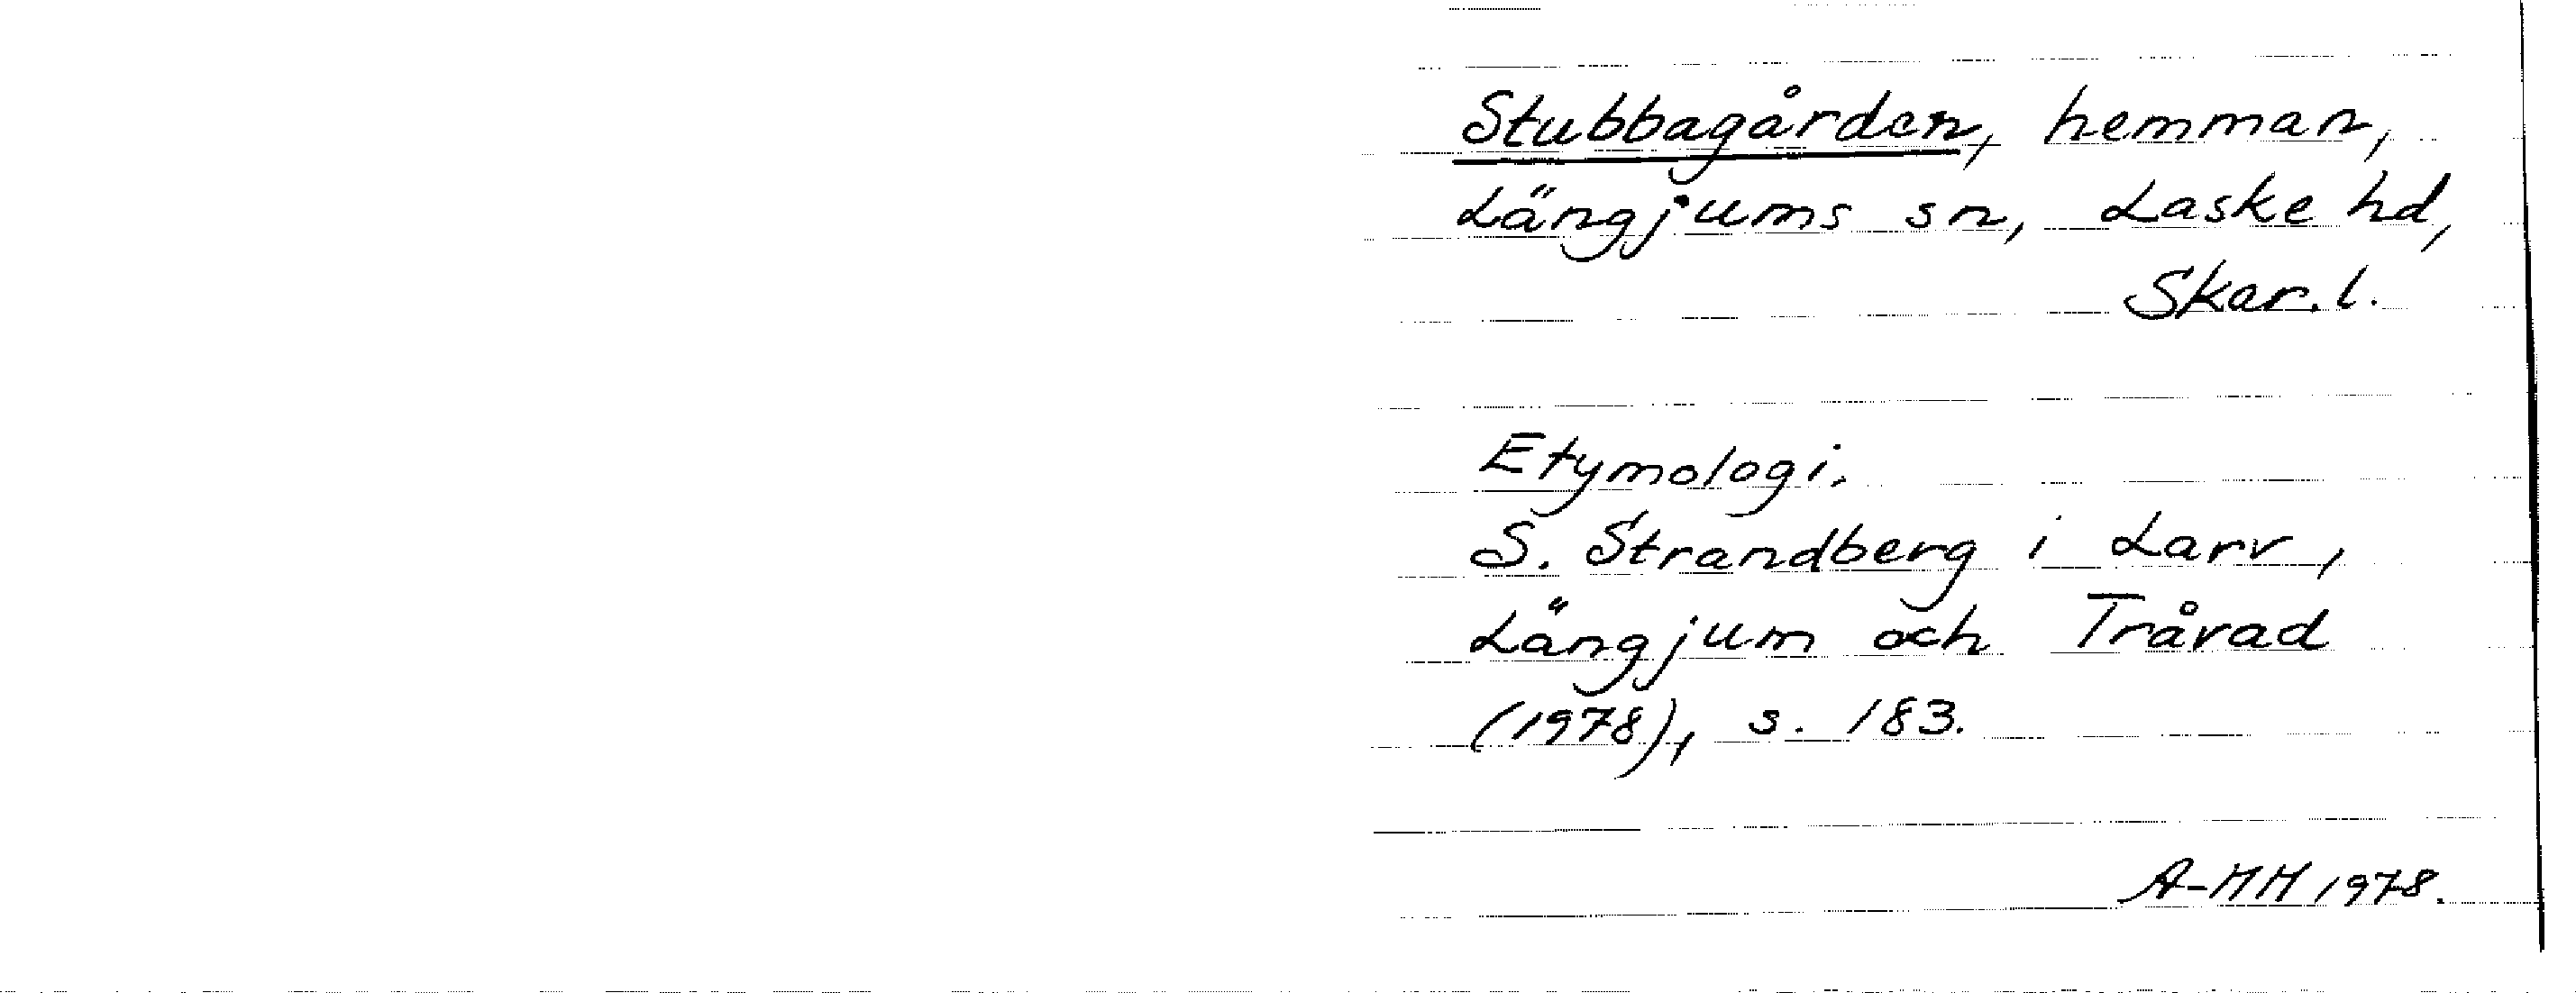 Stubbagården, hemman,
Längjums sn, Laske hd,
Skar. l.
Etymologi.
S. Strandberg i Larv,
Längjum och Trårad
(1978), s. 183.
A-MH 1978.